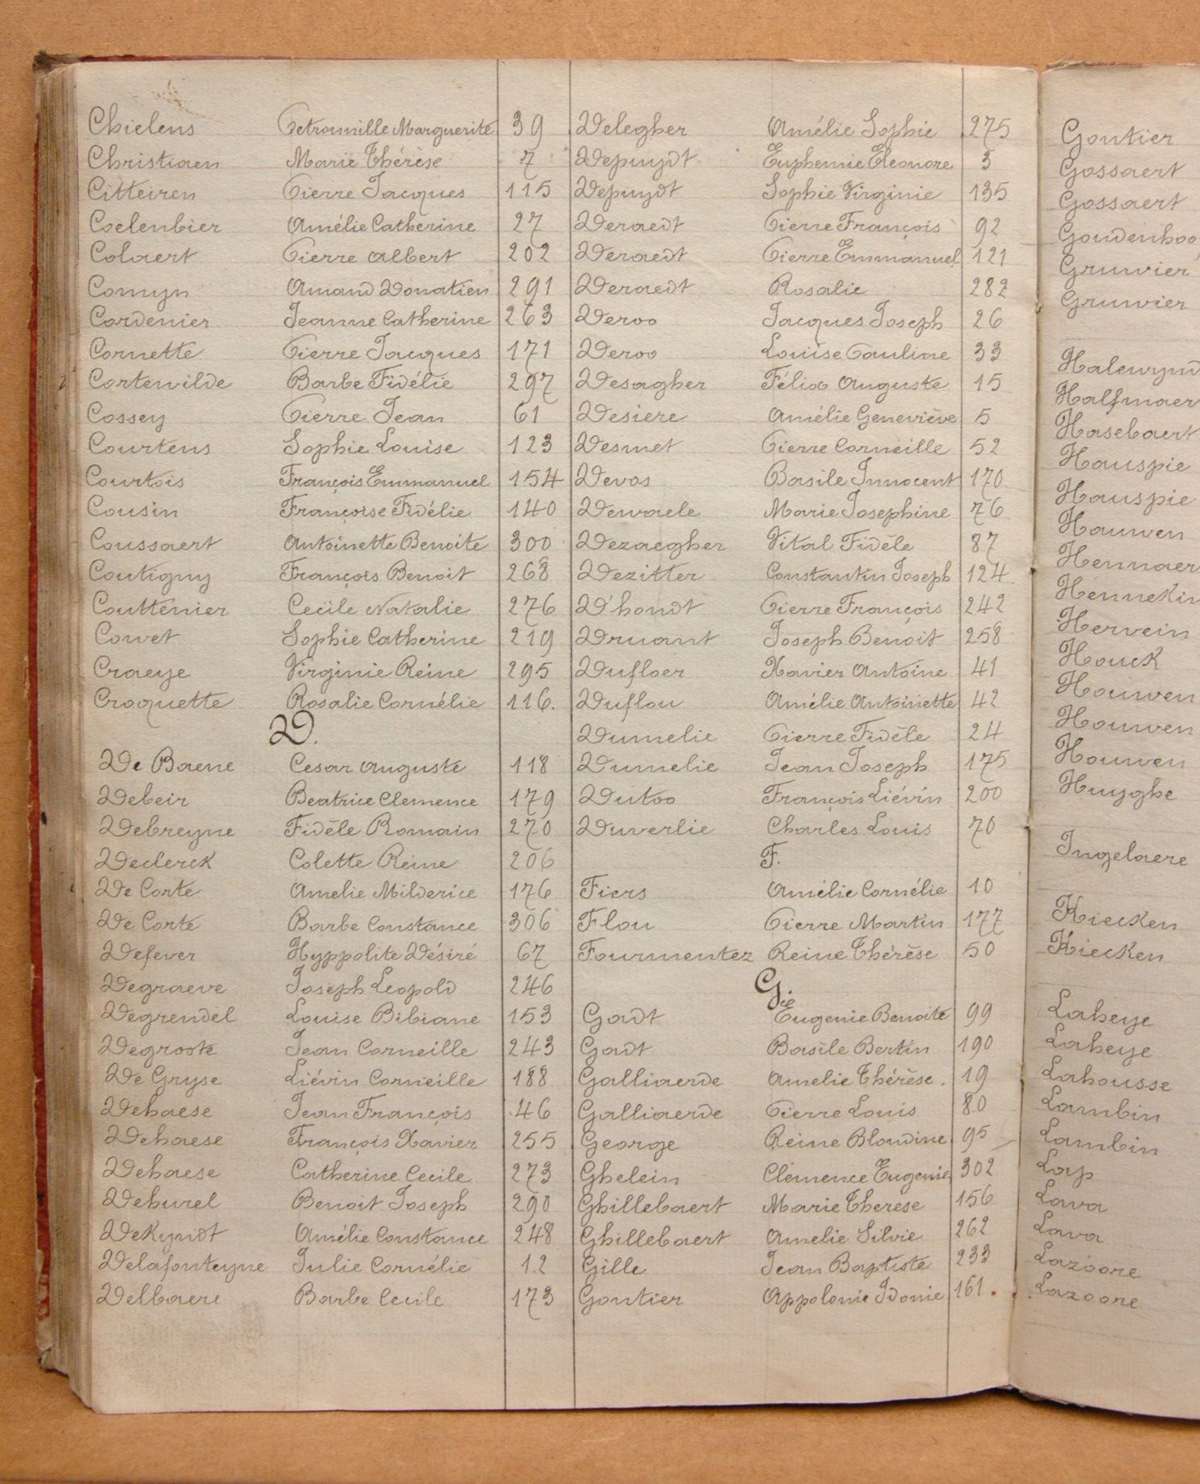 Chielens Petronnille Marguerite 39
Christiaen Marie Thérèse 7
Citteiren Pierre Jacques 115
Coelenbier Amélie Catherine 27
Colaert Pierre Albert 202
Comyn Amand Donatien 291
Cordenier Jeanne Catherine 263
Cornette Pierre Jacques 171
Cortewilde Barbe Fidélie 297
Cossey Pierre Jean 61
Courtens Sophie Louise 123
Courtois François Emmanuel 154
Cousin Françoise Fidélie 140
Coussaert Antoinette Benoite 300
Coutigny François Benoit 268
Couttenier Cecile Natalie 276
Cowet Sophie Catherine 219
Craeye Virginie Reine 295
Croquette Rosalie Cornélie 116.
D.
De Baene Cesar Auguste 118
Debeir Beatrice Clemence 179
Debreyne Fidèle Romain 270
Declerck Colette Reine 206
De Corte Amelie Milderice 176
De Corte Barbe Constance 306
Defever Hyppolite Désiré 67
Degraeve Joseph Leopold 246
Degrendel Louise Bibiane 153
Degroote Jean Corneille 243
De Gryse Liévin Corneille 188
Dehaese Jean François 46
Dehaese François Xavier 255
Dehaese Catherine Cecile 273
Dehurel Benoit Joseph 290
DeKyndt Amélie Constance 248
Delafonteyne Julie Cornélie 12
Delbaere Barbe Cecile 173
Delegher Amélie Sophie 275
Depuydt Euphemie Eléonore 3
Depuydt Sophie Virginie 135
Deraedt Pierre François 92
Deraedt Pierre Emmanuel 121
Deraedt Rosalie 282
Deroo Jacques Joseph 26
Deroo Louise Pauline 33
Desagher Félix Auguste 15
Desiere Amélie Geneviève 5
Desmet Pierre Corneille 52
Devos Basile Innocent 170
Dewaele Marie Josephine 76
Dezaegher Vital Fidèle 87
Dezitter Constantin Joseph 124
D'hondt Pierre François 242
Druant Joseph Benoit 258
Dufloer Xavier Antoine 41
Duflou Amélie Antoinette 42
Dumelie Pierre Fidèle 24
Dumelie Jean Joseph 175
Dutoo François Liévin 200
Duverlie Charles Louis 70
F.
Fiers Amélie Cornélie 10
Flou Pierre Martin 177
Fourmentez Reine Thérèse 50
G.
Gadt Eugenie Benoite 99
Gadt Basile Bertin 190
Galliaerde Amelie Thérèse. 19
Galliaerde Pierre Louis 80
George Reine Blondine 95
Ghelein Clemence Eugenie 302
Ghillebaert Marie Therese 156
Ghillebaert Amelie Silvie 262
Gille Jean Baptiste 233
Gontier Appolonie Idonie 161.
Gontier
Gossaert
Gossaert
Goudenhoo
Gruwier
Gruwier
Halewynd
Halfmaer
Hasebaert
Hauspie
Hauspie
Hauwen
Hennaer
Hennekin
Hervein
Houck
Houwen
Houwen
Houwen
Huyghe
Ingelaere
Kiecken
Kiecken
Laheye
Laheye
Lahousse
Lambin
Lambin
Lap
Lava
Lava
Lazoore
Lazoore